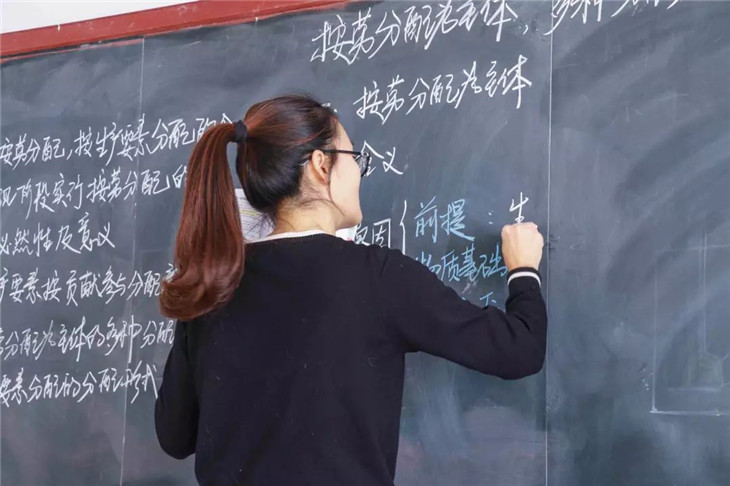 按劳分配为主体，多种
按劳分配为主体
含义
原因
前提：生
物质基础
按劳分配，按生产要素分配的含
现阶段实行按劳分配的
必然性及意义
要素按贡献参与分配
劳分配为主体的多种分配
要素分配的分配形式